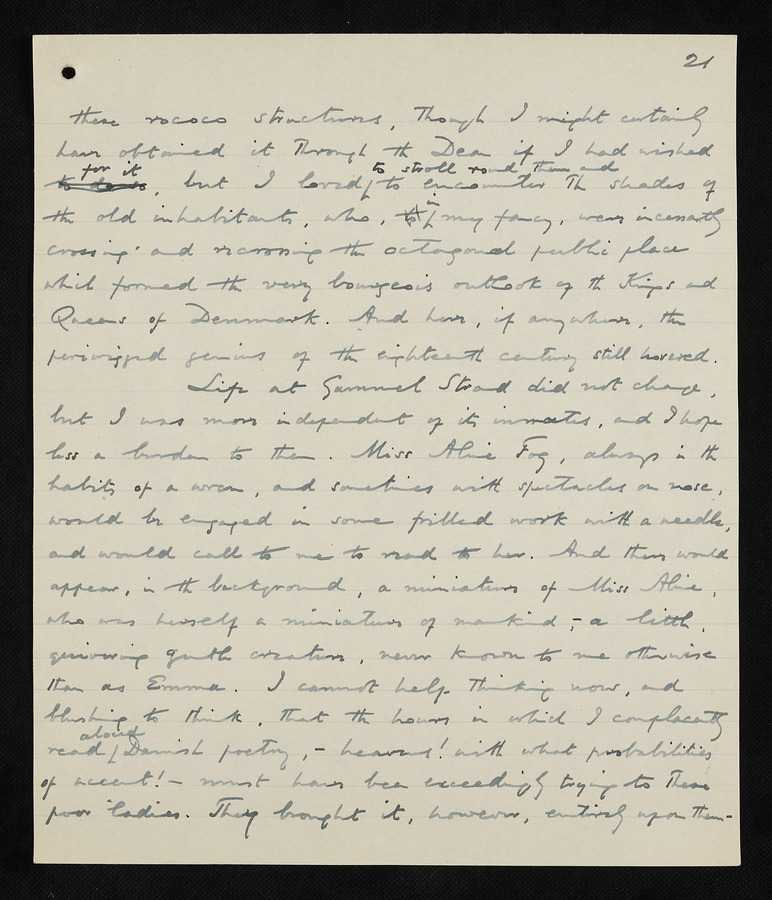 21
these rococo structures, though I might certainly
have obtained it through the Dean if I had wished
for it to stroll round them and
to do so, but I loved to encounter the shades of
in
the old inhabitants, who, to my fancy, were incessantly
crossing and recrossing the octagonal public place
which formed the very bourgeois outlook of the Kings and
Queens of Denmark. And here, if anywhere, the
periwigged genius of the eighteenth century still hovered.
Life at Gammel Strand did not change,
but I was more independent of its inmates, and I hope
less a burden to them. Miss Aline Fog, always in the
habits of a wren, and sometimes with spectacles on nose,
would be engaged in some frilled work with a needle,
and would call to me to read to her. And there would
appear, in the background, a miniature of Miss Aline,
who was herself a miniature of mankind, - a little,
quivering gentle creature, never known to me otherwise
than as Emma. I cannot help thinking now, and
blushing to think, that the hours in which I complacently
aloud
read Danish poetry, - heavens! with what probabilities
of accent! - must have been exceedingly trying to these
poor ladies. They brought it, however, entirely upon them-